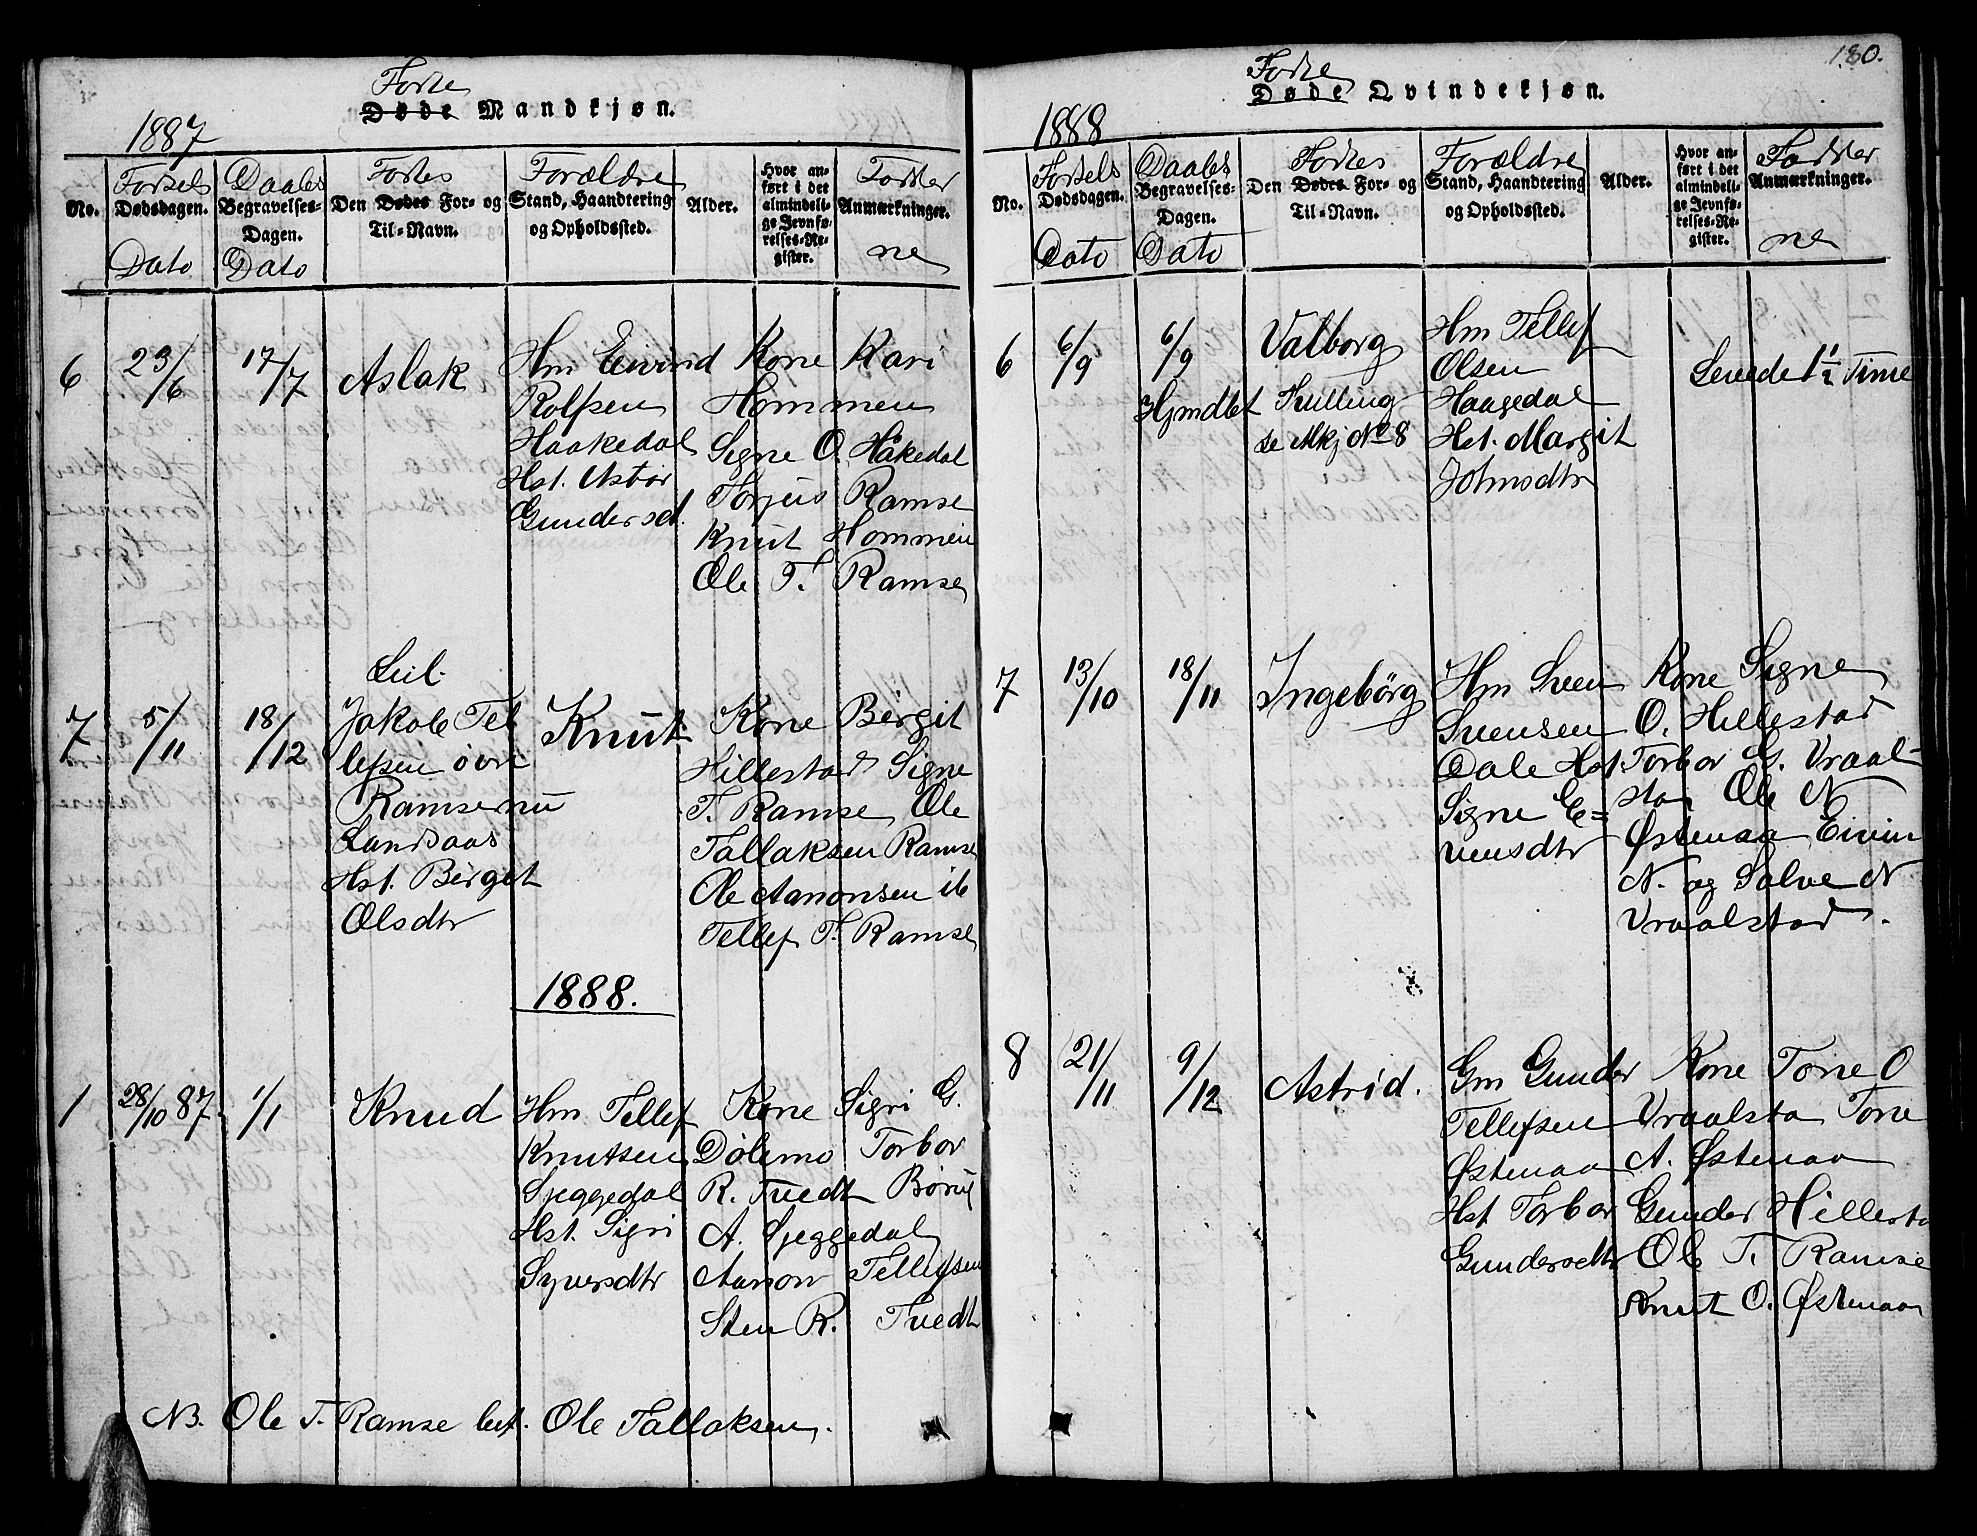 180.
Fødte
Døde Mandkjøn.
1887
No.
Fødsels
Dødsdagen.
Dato
Daabs
Begravelses-
Dagen.
Dato
Fødtes
Den Dødes For- og
Til-Navn.
Forældre
Stand, Haandtering
og Opholdssted.
Alder.
Hvor an-
ført i det
almindeli-
ge Jevnfø-
relses-Re-
gister.
Faddere
Anmærkninger.
ne
6
23/6
17/7
Aslak
Hm Eivind
Rolfsen
Haakedal
Hst. Asbor
Gundersd.
Kone Kari
Hommen
Signe O. Håkedal
Torjus Ramse
Knut Hommen
Ole T. Ramse
7
5/11
18/12
Jakob Tel
lefsen øvre
Ramse nu
Landaas
Hst. Berget
Olsdtr
Knut
Kone Bergit
Hillestad Signe
T. Ramse Ole
Tallaksen Ramse
Ole Aanonsen ib
Tellef T. Ramse
1888.
1
28/10 87
1/1
Knud
Hm Tellef
Knutsen
Sjeggedal
Hst. Sigri
Syversdtr
Kone Sigri G.
Dølemo Torbor
R. Tuedt
A. Sjeggedal
Aanon Tellefsen
Sten R. Tuedt
NB. Ole T. Ramse Ole Tallaksen.
Fødte
Døde Qvindekjøn.
1888
No.
Fødsels
Dødsdagen.
Dato
Daabs
Begravelses-
Dagen.
Dato
Fødtes
Den Dødes For- og
Til-Navn.
Forældre
Stand, Haandtering
og Opholdssted.
Alder.
Hvor an-
ført i det
almindeli-
ge Jevnfø-
relses-Re-
gister.
Faddere
Anmærkninger.
ne
6
6/9
6/9
Hjmdbt
Valborg
Tvilling
se Mkj No 8
Hm Tellef
Olsen
Haagedal
Hst. Margit
Johnsdtr
Levede 1 1/2 Time
7
13/10
18/11
Ingebørg
Hm Sven
Svensen
Dale Hst
Signe E=
vensdtr
Kone Signe
O. Hillestad
Torbor G. Vraal-
stad Ole N
Østenaa Eivin
N. og Salve N
Vraalstad.
8
21/11
9/12
Astrid.
Gm Gunder
Tellefsen
Østenaa
Hst Torbor
Gundersdtr
Kone Tone O
Vraalsta Tone
A. Østenaa
Gunder Hillesta
Ole T. Ramse
Knut O. Østenaa